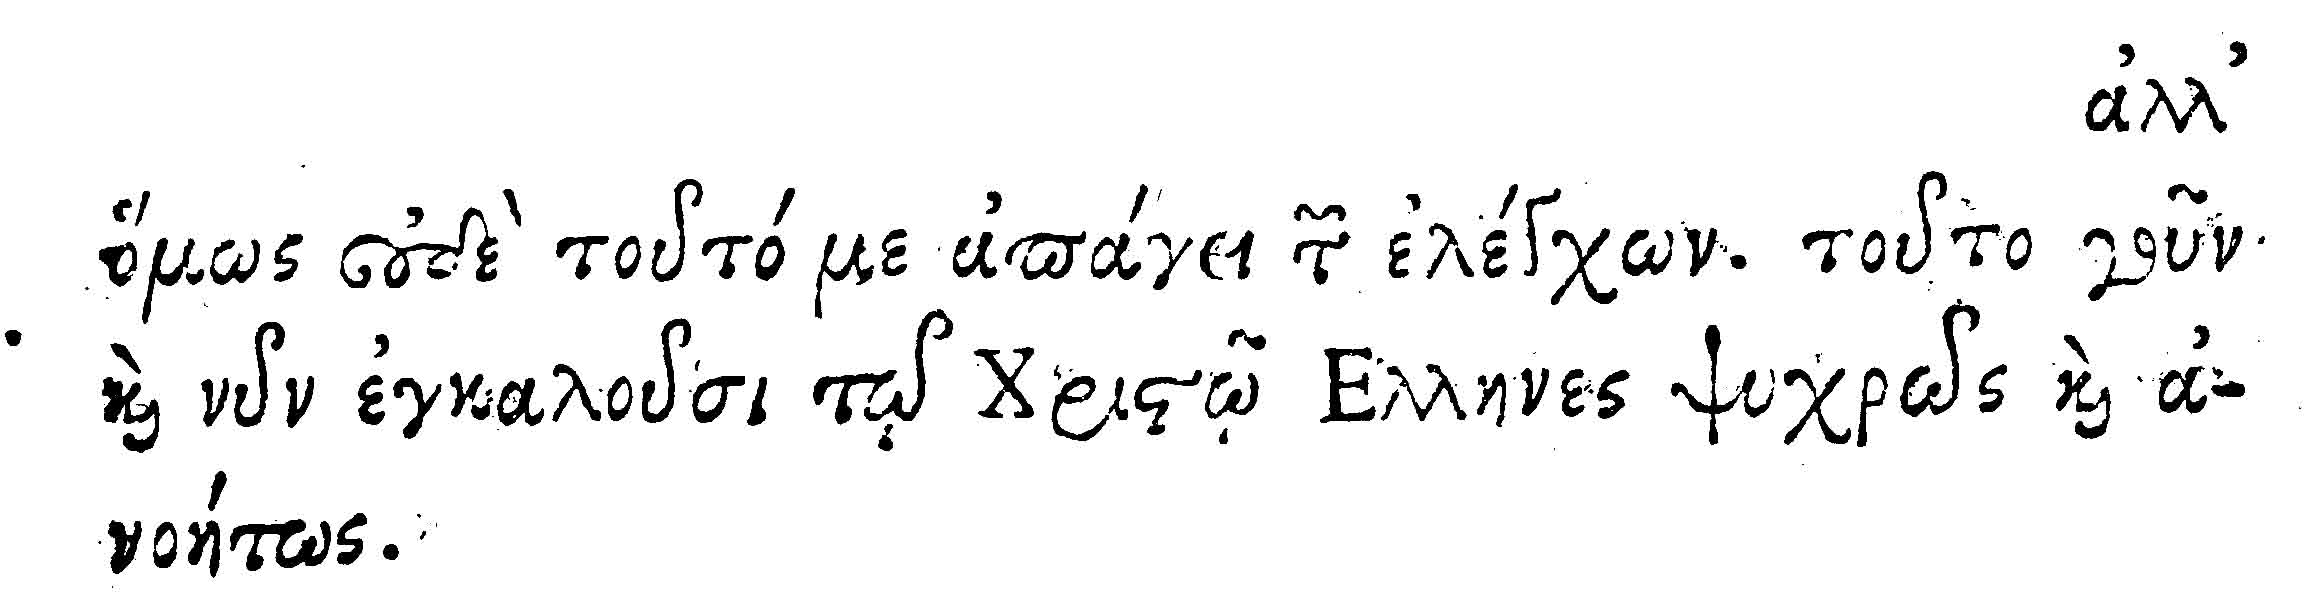 ἀλλ’
ὅμως οὐδὲ τοῦτό με ἀπάγει τ῀ ἐλέγχων. τοῦτο γοῦν
κὶ νῦν ἐγκαλοῦσι τῷ Χριϛῷ Ελληνες ψυχρῶς κὶ ἀ-
νοήτως.